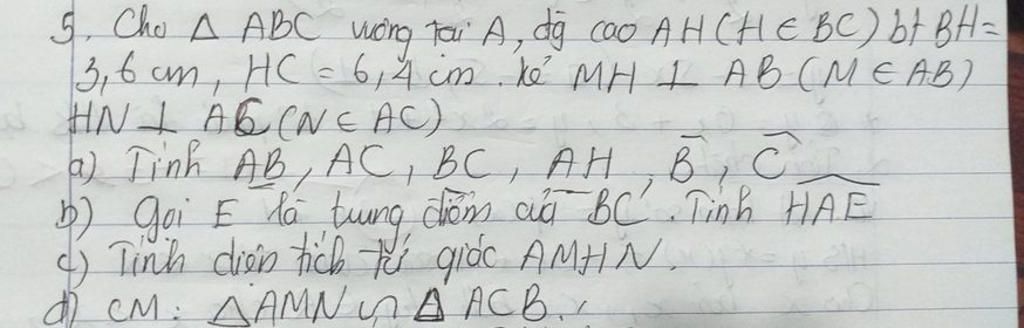 5. Cho Δ ABC vuông tại A, đg cao AH (H ∈ BC) bt BH =
3,6 cm, HC = 6,4 cm. kẻ MH ⊥ AB (M ∈ AB)
HN ⊥ AC (N ∈ AC)
a) Tính AB, AC, BC, AH, B̂, Ĉ
b) gọi E là trung điểm của BC. Tính HAE
c) Tính diện tích tứ giác AMHN.
d) CM: ΔAMN ∽ Δ ACB.